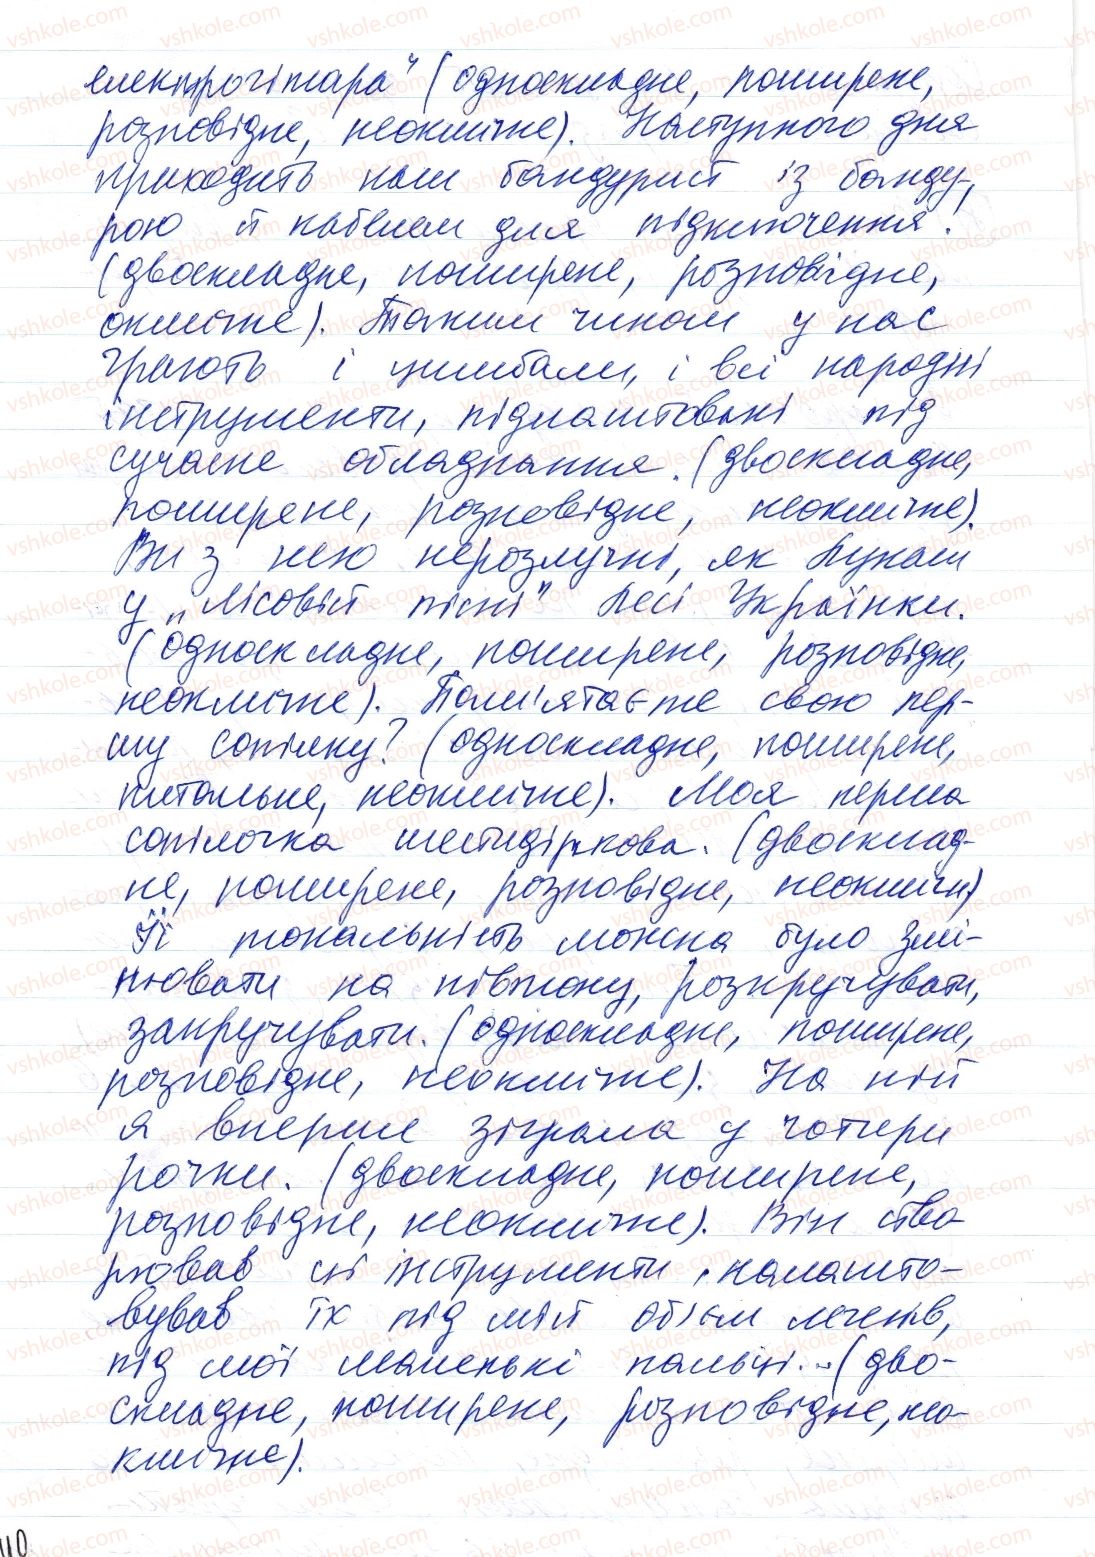 електрогітара" (односкладне, поширене,
розповідне, неокличне). Наступного дня
приходить наш бандурист із банду-
рою й кабелем для підключення!
(двоскладне, поширене, розповідне,
окличне). Таким чином у нас
грають і цимбали, і всі народні
інструменти, підлаштовані під
сучасне обладнання. (двоскладне,
поширене, розповідне, неокличне).
Ви з нею нерозлучні, як Лукаш
у „Лісовій пісні" Лесі Українки.
(односкладне, поширене, розповідне,
неокличне). Пам'ятаєте свою пер-
шу сопілку? (односкладне, поширене,
питальне, неокличне). Моя перша
сопілочка шестидіркова. (двосклад-
не, поширене, розповідне, неокличне)
Її тональність можна було змі-
нювати на півтону, розкручувати,
закручувати. (односкладне, поширене,
розповідне, неокличне). На ній
я вперше зіграла у чотири
рочки. (двоскладне, поширене,
розповідне, неокличне). Він ство
рював ці інструменти, налашто-
вував їх під мій об'єм легенів,
під мої маленькі пальці... (дво-
складне, поширене, розповідне, нео-
кличне).
110
vshkole.com